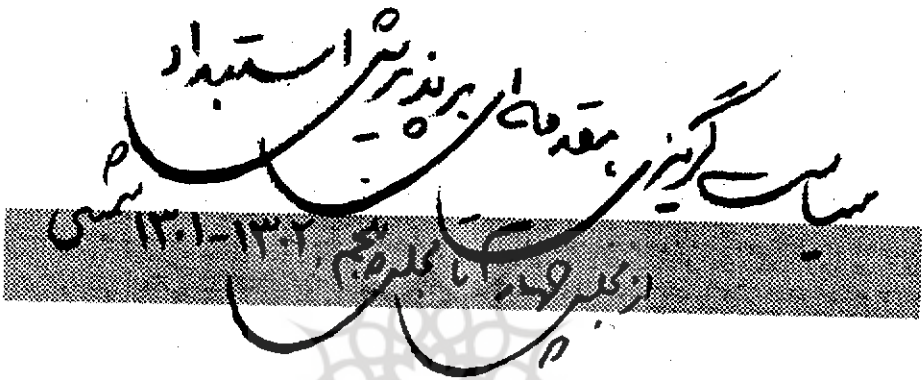 سیاست گریزی، مقدمه ای بر پذیرش استبداد
از مجلس چهارم تا مجلس پنجم، ۱۳۰۲-۱۳۰۱ شمسی